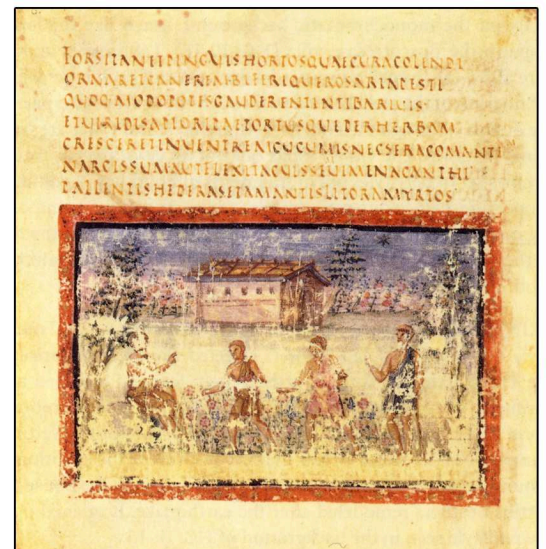 FORSITANETPINGUISHORTOSQUAECURACOLENDI
ORNARETCANEREMBIFERIQUEROSARIAPESTI
QUOQ·MODOPOTISGAUDERENTINTIBARIUIS
ETUIRIDISAPIORIPAETORTUSQUEPERHERBAM
CRESCERETINUENTREMCUCUMISNECSERACOMANTE
NARCISSUMAUTFLEXITACUISSEUIMINACANTHI
PALLENTISHEDERASETAMANTISLITORAMYRTOS